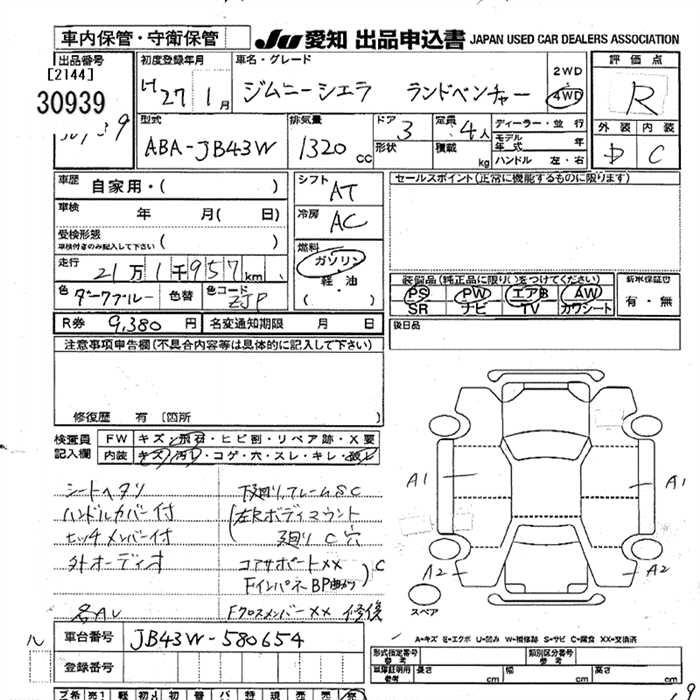 車内保管・守衛保管
JU 愛知 出品申込書 JAPAN USED CAR DEALERS ASSOCIATION
出品番号
[2144]
30939
初度登録年月
H27 1月
車名・グレード
ジムニーシエラ ランドベンチャー
2WD
4WD
評価点
R
外装 内装
D C
型式
ABA-JB43W
排気量
1320 cc
ドア
3
形状
定員
4人
積載 kg
ディーラー・並行
モデル年式 年
ハンドル 左・右
車歴 自家用・( )
車検 年 月( 日)
受検形態
車検付きのみ記入して下さい ( )
走行 21万1千957km
色 ダークブルー 色替 色コード ZJP
R券 9,380円 名変通知期限 月 日
シフト AT
冷房 AC
燃料
ガソリン
軽油
( ・ )
セールスポイント(正常に機能するものに限ります)
装備品(純正品に限り○をつけてください)
PS PW エアB AW
SR ナビ TV カワシート
新米保証書
有・無
後日品
注意事項申告欄(不具合内容等は具体的に記入して下さい)
修復歴 有 〔箇所
検査員
記入欄
FW キズ・飛石・ヒビ割・リペア跡・X要
内装 キズ・汚レ・コゲ・穴・スレ・キレ・破レ
シートヘタリ
ハンドルカバー付
ヒッチメンバー付
外オーディオ
下廻リ,フレームSC
左右ボディマウント
廻リC穴
コアサポートXX
FインパネBP曲り
C
FクロスメンバーXX 修復
A1 A1
A2 A2
スペア
A=キズ E=エクボ U=凹み W=補修跡 S=サビ C=腐食 XX=交換済
車台番号 JB43W-580654
登録番号
形式指定番号
参考
類別区分番号
参考
車庫証明用
参考
長さ cm 幅 cm 高さ cm